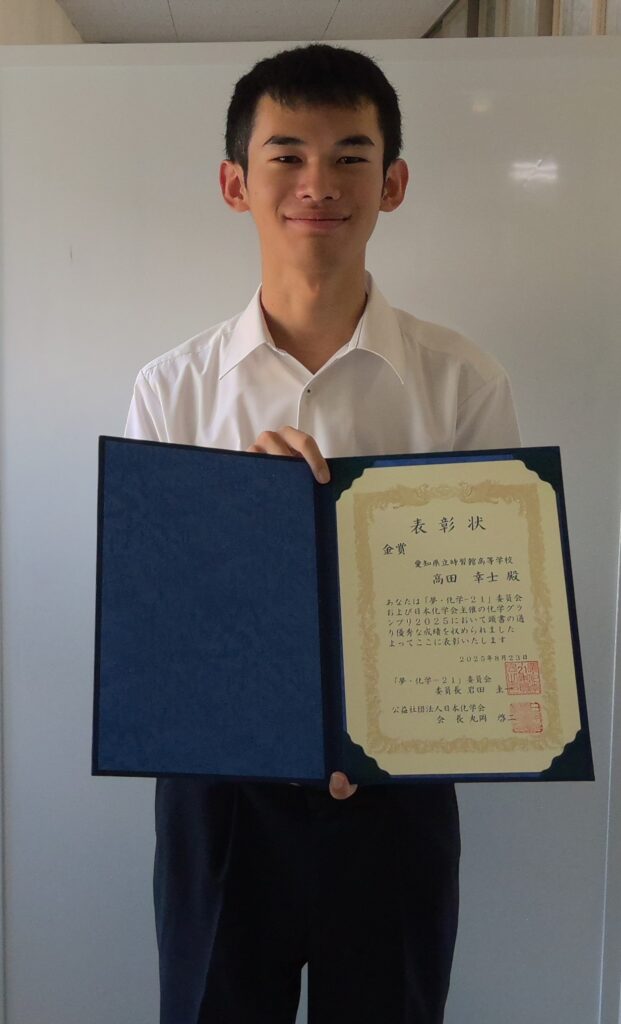 表彰状
金賞
愛知県立時習館高等学校
高田 幸士 殿
あなたは「夢・化学-21」委員会
および日本化学会主催の化学グラ
ンプリ2025において頭書の通
り優秀な成績を収められました
よってここに表彰いたします
2025年8月23日
「夢・化学-21」委員会
委員長 岩田 圭一
公益社団法人日本化学会
会長 丸岡 啓二